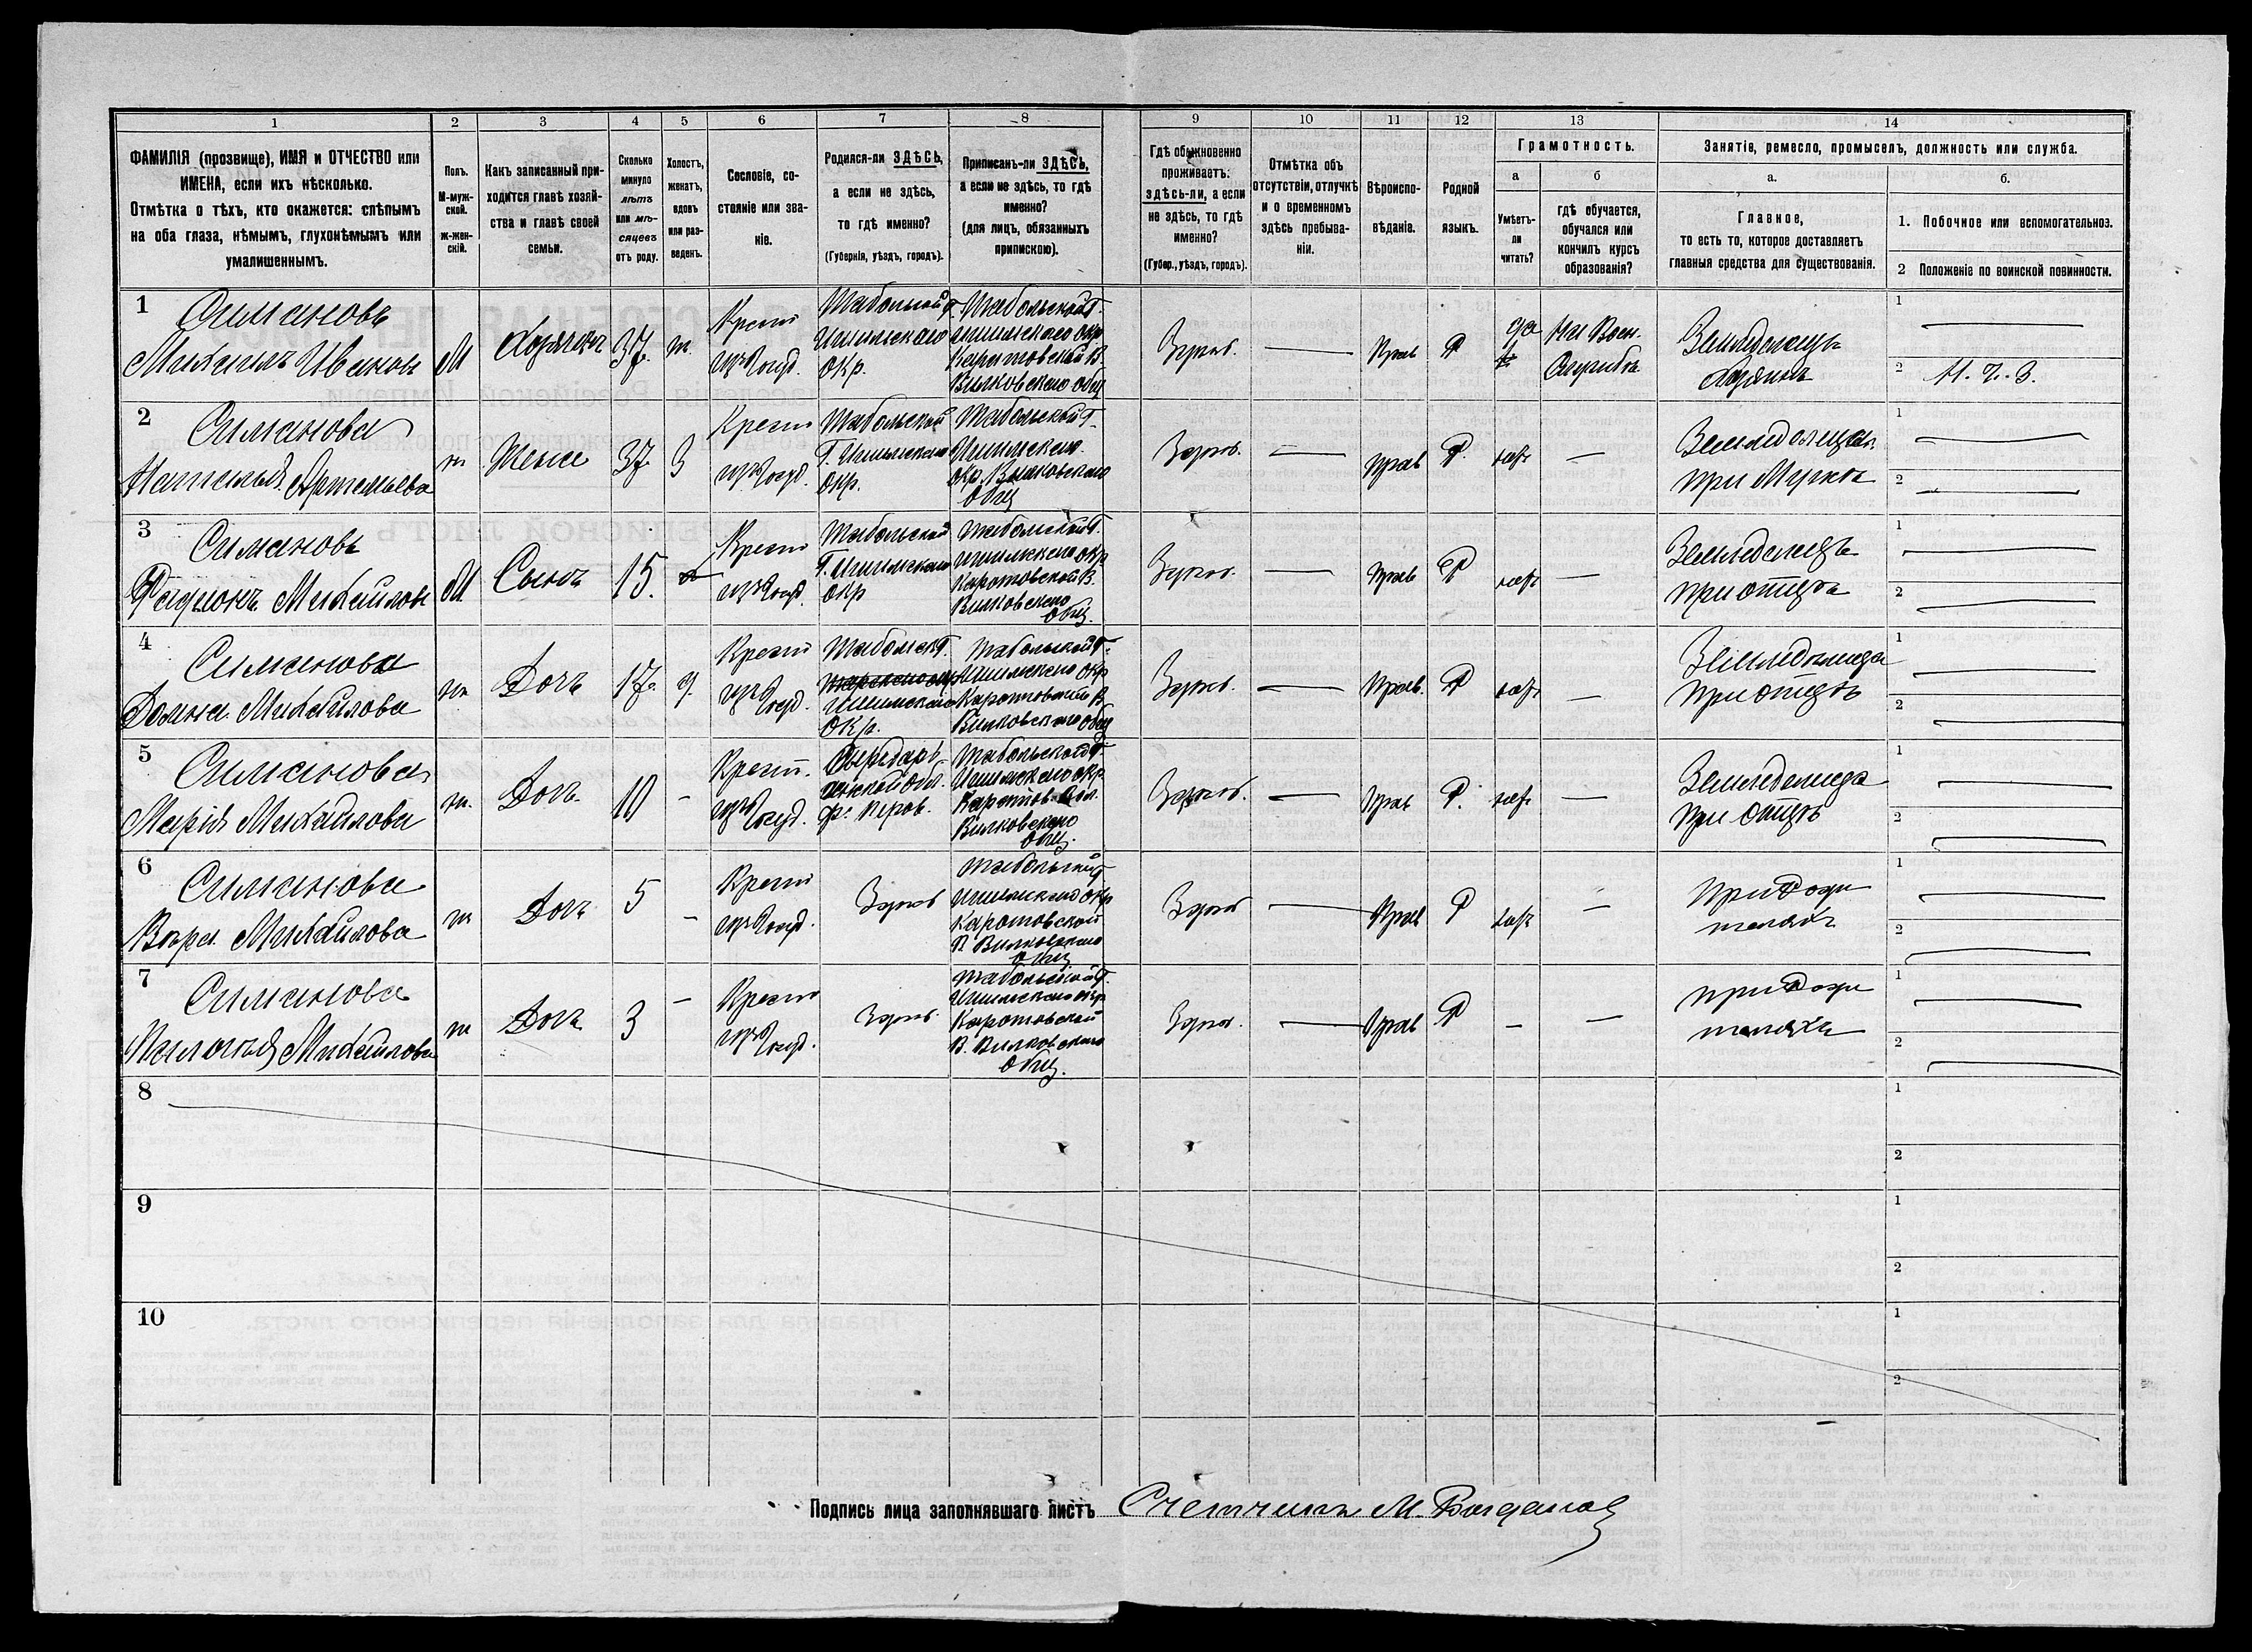 1 2 3 4 5 6 7 8 9 10 11 12 13 14
ФАМИЛІЯ (прозвище), ИМЯ и ОТЧЕСТВО или
ИМЕНА, если ихъ нѣсколько.
Отмѣтка о тѣхъ, кто окажется: слѣпымъ
на оба глаза, нѣмымъ, глухонѣмымъ или
умалишеннымъ.
Полъ.
М-муж-
ской.
ж-жен-
скій.
Какъ записанный при-
ходится главѣ хозяй-
ства и главѣ своей
семьи.
Сколько
минуло
лѣтъ
или мѣ-
сяцевъ
отъ роду.
Холостъ,
женатъ,
вдовъ
или раз-
веденъ.
Сословіе, со-
стояніе или зва-
ніе.
Родился-ли ЗДѢСЬ,
а если не здѣсь,
то гдѣ именно?
(Губернія, уѣздъ, городъ).
Приписанъ-ли ЗДѢСЬ,
а если не здѣсь, то гдѣ
именно?
(для лицъ, обязанныхъ
припискою).
Гдѣ обыкновенно
проживаетъ:
здѣсь-ли, а если
не здѣсь, то гдѣ
именно?
(Губер., уѣздъ, городъ).
Отмѣтка объ
отсутствіи, отлучкѣ
и о временномъ
здѣсь пребыва-
ніи.
Вѣроиспо-
вѣданіе.
Родной
языкъ.
Грамотность.
а
Умѣетъ-
ли
читать?
б
гдѣ обучается,
обучался или
кончилъ курсъ
образованія?
Занятіе, ремесло, промыселъ, должность или служба.
а.
Главное,
то есть то, которое доставляетъ
главныя средства для существованія.
б.
1. Побочное или вспомогательноз.
2 Положеніе по воинской повинности.
1
Симановъ
Михаилъ Ивановъ
М
Хозяинъ
37
ж.
Крест
изъ госуд.
Тобольской Г.
Ишимскаго
Окр.
Тобольской Г.
Ишимскаго окр
Каротовской В
Вилковскаго общ
Здѣсь.
Прав
Р
да
На Воен.
Службѣ
Земледѣлецъ
Хозяинъ
1
2 Н. Ч. З.
2
Симанова
Наталья Артемьева
ж
Жена
37
З
Крест
изъ госуд.
Тобольской
Г. Ишимскаго
Окр.
Тобольской Г.
Ишимскаго
окр. Вилковскаго
Общ
Здѣсь.
прав
Р.
нѣтъ
Земледѣлица
при Мужѣ
1
2
3
Симановъ
Родионъ Михайловъ
М.
Сынъ
15.
Крест
изъ госуд.
Тобольской
Г. Ишимскаго
окр
Тобольской Г.
Ишимскаго окр
Каротовской В.
Вилковскаго
Общ.
Здѣсь.
Прав
Р
нѣтъ
Земледѣлецъ
при отцѣ
1
2
4
Симанова
Домна Михайлова
ж.
Дочь
17.
д.
Крест
изъ госуд.
Тобольск Г.
Ишимскаго
Окр.
Тобольской Г.
Ишимскаго окр
Каротовской В
Вилковскаго общ
Здѣсь.
Прав.
Р
нѣтъ
Земледѣлица
при отцѣ
1
2
5
Симанова
Марія Михайлова
ж.
Дочь
10
Крест.
изъ госуд.
Сырдарь
инской Обл.
Ф. Перов.
Тобольской Г.
Ишимскаго окр
Каротов. Вол.
Вилковскаго
общ.
Здѣсь.
Прав
Р.
нѣтъ
Земледѣлица
При отцѣ
1
2
6
Симанова
Вѣра Михайлова
ж
Дочь
5
Крест
изъ госуд.
Здѣсь
Тобольской Г
Ишимскаго окр
Каротовской
В Вилковскаго
общ
Здѣсь
Прав
Р
нѣтъ
При Роди
теляхъ
1
2
7
Симанова
Пелагѣя Михайлова
ж
Дочь
3
Крест
изъ госуд.
Здѣсь.
Тобольской Г.
Ишимскаго окр
Каротовской
В. Вилковскаго
Общ.
Здѣсь.
Прав
Р
при Роди
теляхъ
1
2
8
1
2
9
1
2
10
1
2
Подпись лица заполнявшаго листъ Счетчикъ М. Богданов